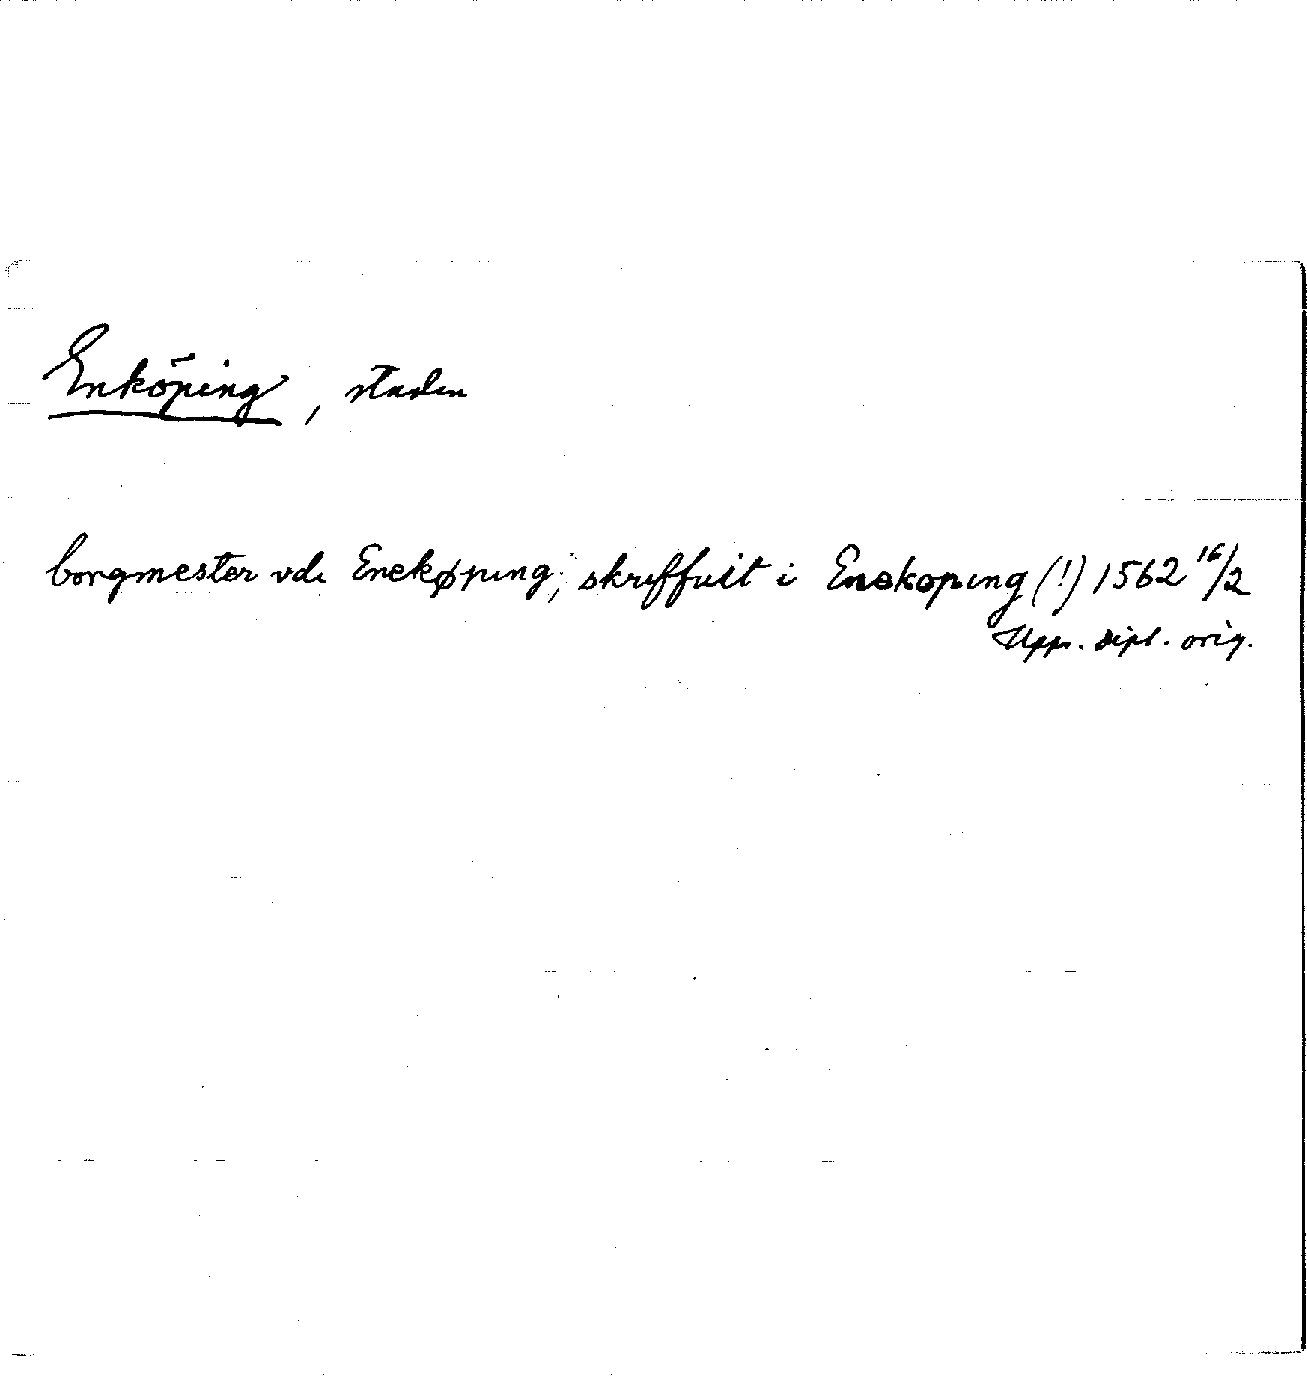 Enköping, staden
borgmester vdi Enekøping; skriffuit i Enekoping (!) 1562 16/2
Upps. dipl. orig.